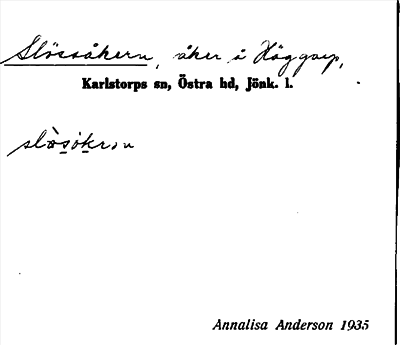 Slössåkern, åker å Häggarp,
Karlstorps sn, Östra hd, Jönk. l.
slòsòkrɔn
Annalisa Anderson 1935